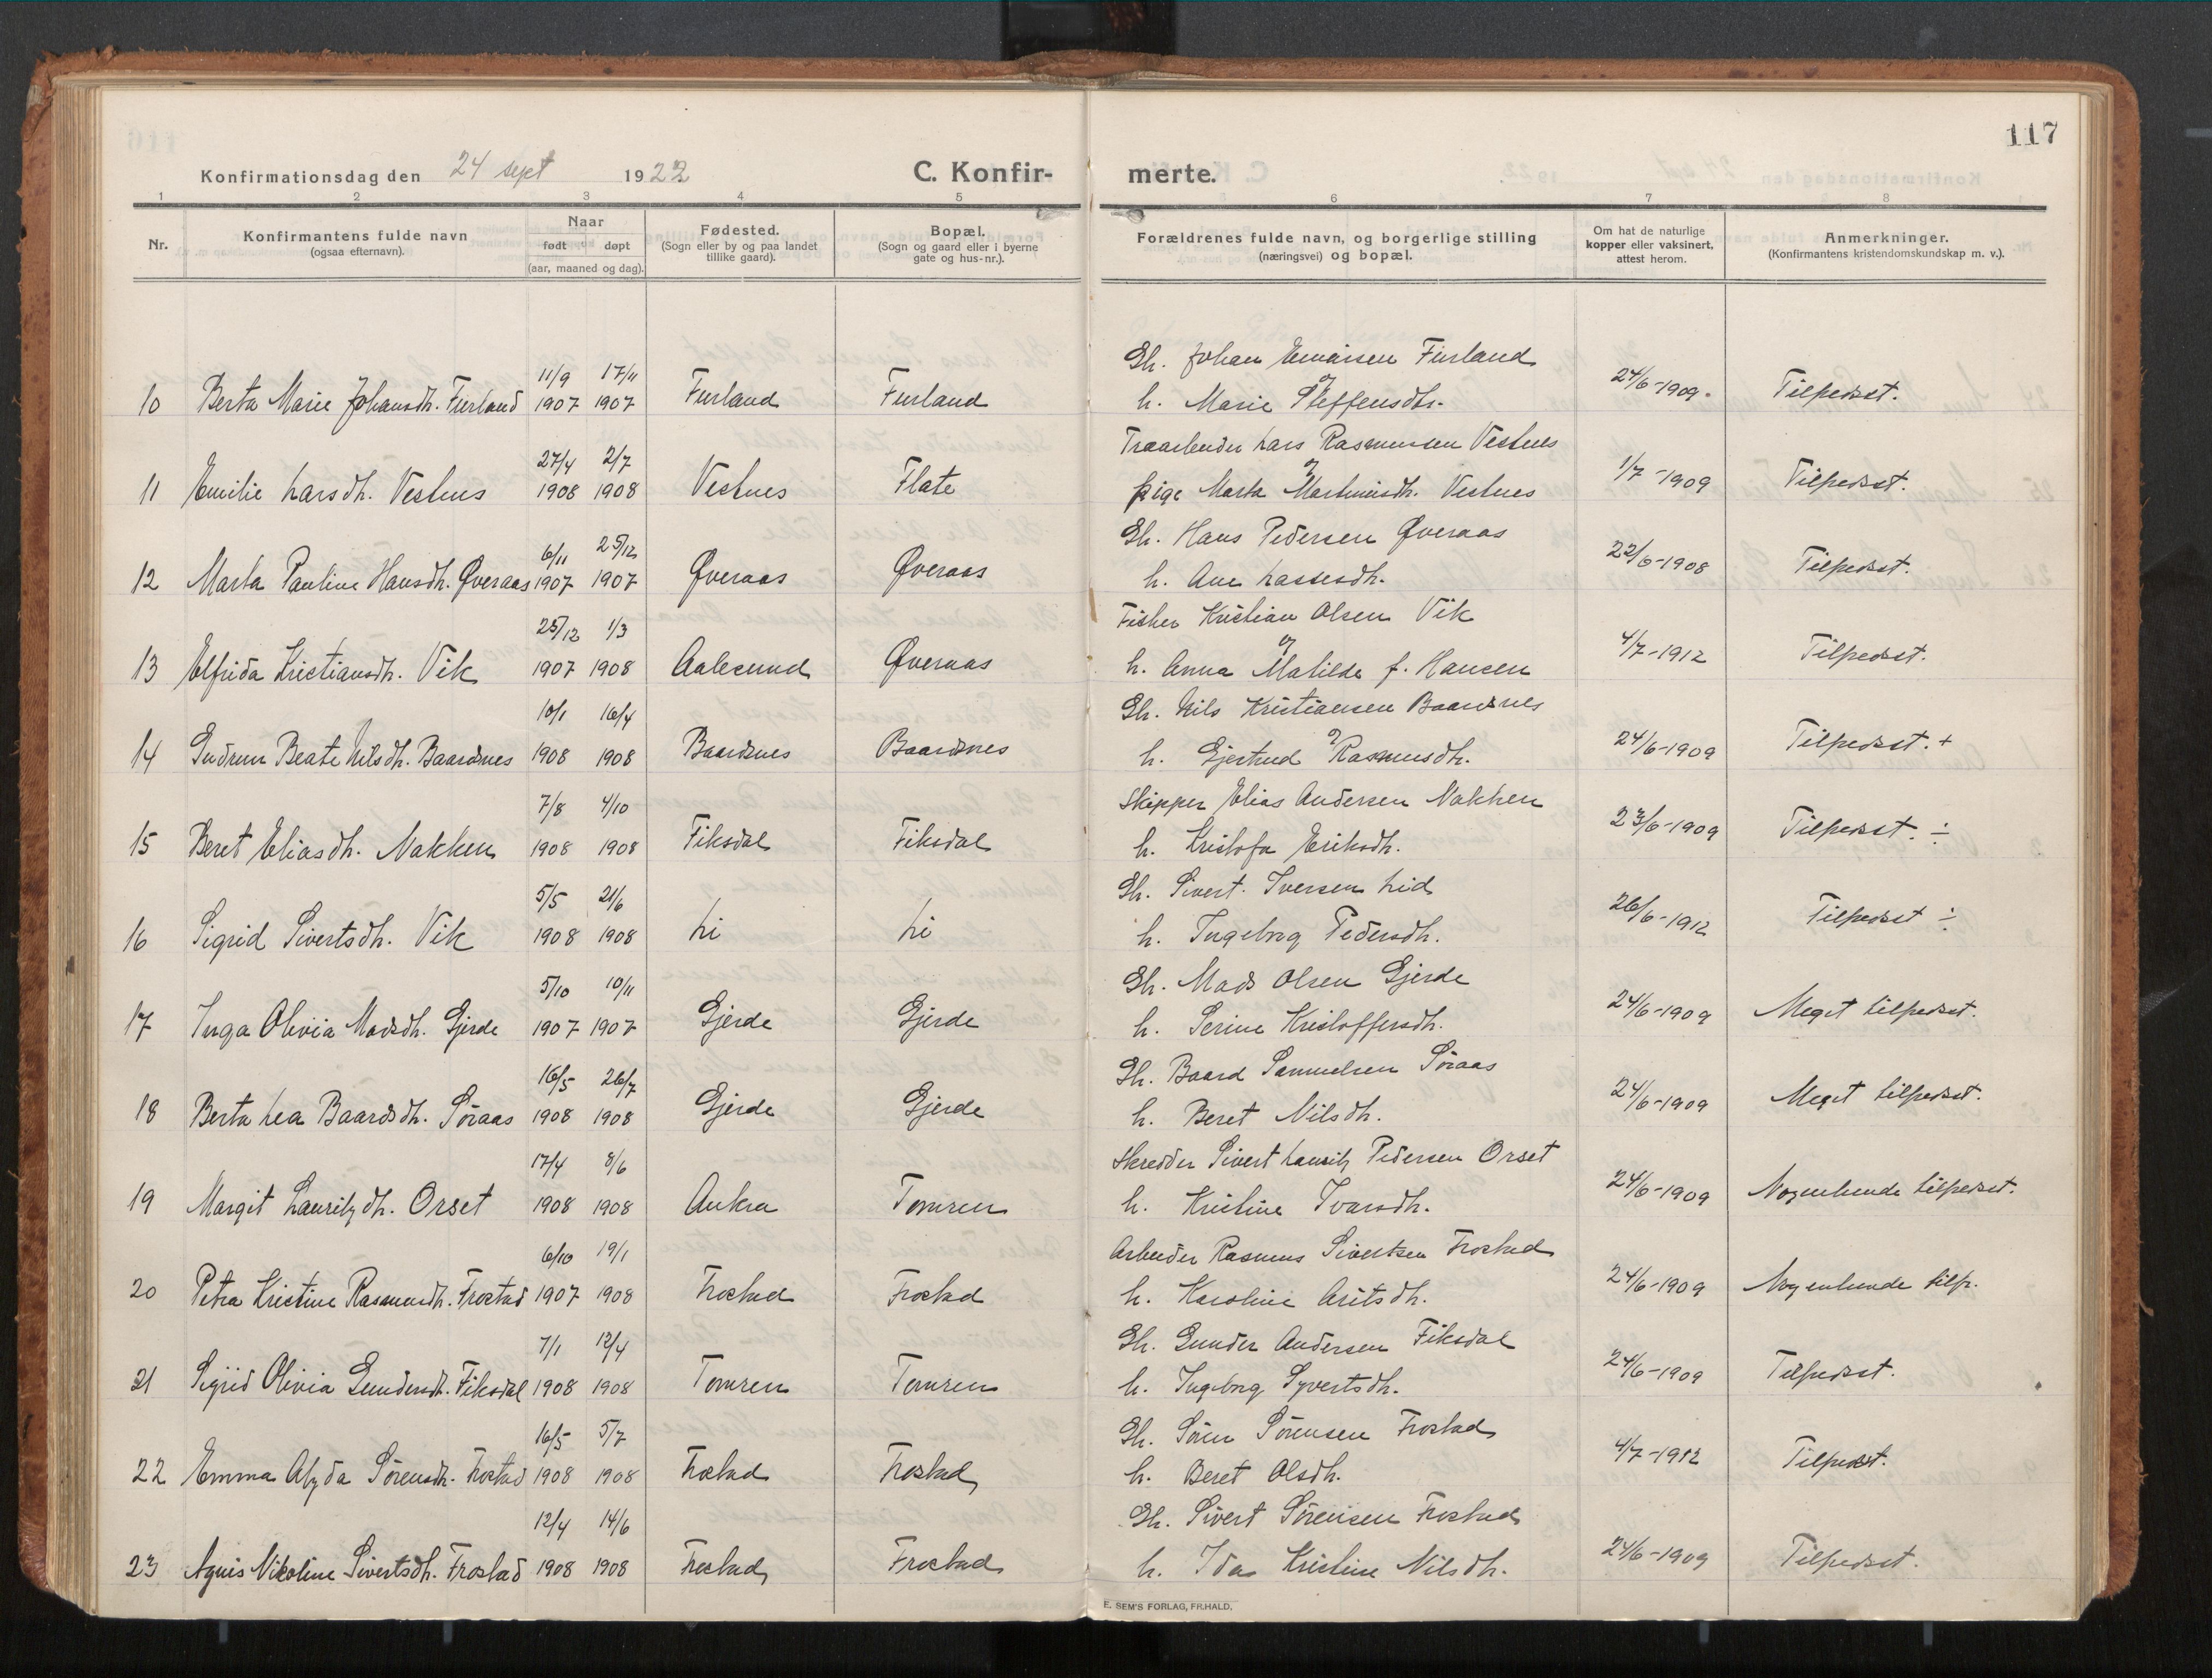 117
Konfirmationsdag den 24 sept 1922 C. Konfir- merte.
1 2 3 4 5 6 7 8
Nr. Konfirmantens fulde navn (ogsaa efternavn). Naar født døpt (aar, maaned og dag). Fødested. (Sogn eller by og paa landet tillike gaard). Bopæl. (Sogn og gaard eller i byerne gate og hus-nr.). Forældrenes fulde navn, og borgerlige stilling (næringsvei) og bopæl. Om hat de naturlige kopper eller vaksinert, attest herom. Anmerkninger. (Konfirmantens kristendomskundskap m. v.).
11/9 17/11 Gh. Johan Furland
10 Berta Marie Johansdh. Furland 1907 1907 Furland Furland h. Marie Steffensdh. 24/6-1909. Tilfredsst.
27/4 2/7 Lars Rasmussen Vestnes
11 Emilie Larsdh. Vestnes 1908 1908 Vestnes Flate pige Marta Martinusdh. Vestnes 1/7-1909 Tilfredsst.
6/11 25/12 Gh. Hans Pedersen Øveraas
12 Marta Pauline Hansdh. Øveraas 1907 1907 Øveraas Øveraas h. Ane Lassesdh. 22/6-1908 Tilfredsst.
25/12 1/3 Fisker Kristian Olsen Vik
13 Elfrida Kristiansdh. Vik 1907 1908 Aalesund Øveraas h. Anna Matilde f. Hansen 4/7-1912 Tilfredsst.
10/1 16/4 Gh. Nils Kristiansen Baardsnes
14 Gudrun Beate Nilsdh. Baardsnes 1908 1908 Baardsnes Baardsnes h. Gjertrud Rasmusdh. 24/6-1909 Tilfredsst. +
7/8 4/10 Skipper Elias Andersen Nakken
15 Beret Eliasdh. Nakken 1908 1908 Fiksdal Fiksdal h. Kristofa Eriksdh. 23/6-1909 Tilfredsst. ÷
5/5 21/6 Gh. Sivert Iversen Lid
16 Sigrid Sivertsdh. Vik 1908 1908 Li Li h. Ingeborg Pedersdh. 26/6-1912 Tilfredsst ÷
5/10 10/11 Gh. Mads Olsen Gjerde
17 Inga Olivia Madsdh. Gjerde 1907 1907 Gjerde Gjerde h. Serine Kristoffersdh. 24/6-1909 Meget tilfredsst.
16/5 26/7 Gh. Baard Samuelsen Søraas
18 Berta Lea Baardsdh. Søraas 1908 1908 Gjerde Gjerde h. Beret Nilsdh. 24/6-1909 Meget tilfredsst.
17/4 8/6 Skredder Sivert Lauritz Pedersen Orset
19 Margit Lauritzdh. Orset 1908 1908 Aukra Tomren h. Kristine Ivarsdh. 24/6-1909 Nogenlunde tilfredsst.
6/10 19/1 Arbeider Rasmus Sivertsen Frostad
20 Petra Kristine Rasmusdh. Frostad 1907 1908 Frostad Frostad h. Karoline 24/6-1909 Nogenlunde tilfr.
7/1 12/4 Gh. Gunder Andersen Fiksdal
21 Sigrid Olivia Gundersdh. Fiksdal 1908 1908 Tomren Tomren h. Ingeborg Syvertsdh. 24/6-1909 Tilfredsst.
16/5 5/7 Gh. Søren Sørensen Frostad
22 Emma Alyda Sørensdh. Frostad 1908 1908 Frostad Frostad h. Beret Olsdh. 4/7-1912 Tilfredsst.
12/4 14/6 Gh. Sivert Sørensen Frostad
23 Agnis Nikoline Sivertsdh. Frostad 1908 1908 Frostad Frostad h. Ida Kristine Nilsdh. 24/6-1909 Tilfredsst.
E. SEM'S FORLAG, FR.HALD.